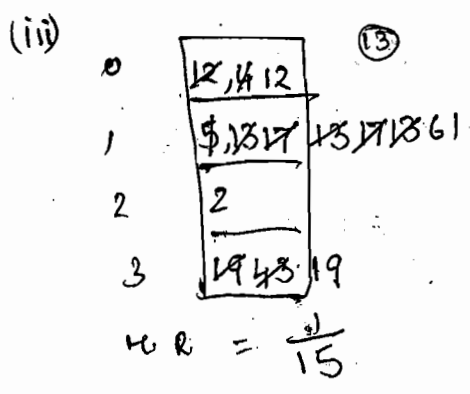 (iii) 13
0 12, 4 12
1 5, 13 17 13 17 13 61
2 2
3 19 43 19
HR = 1/15